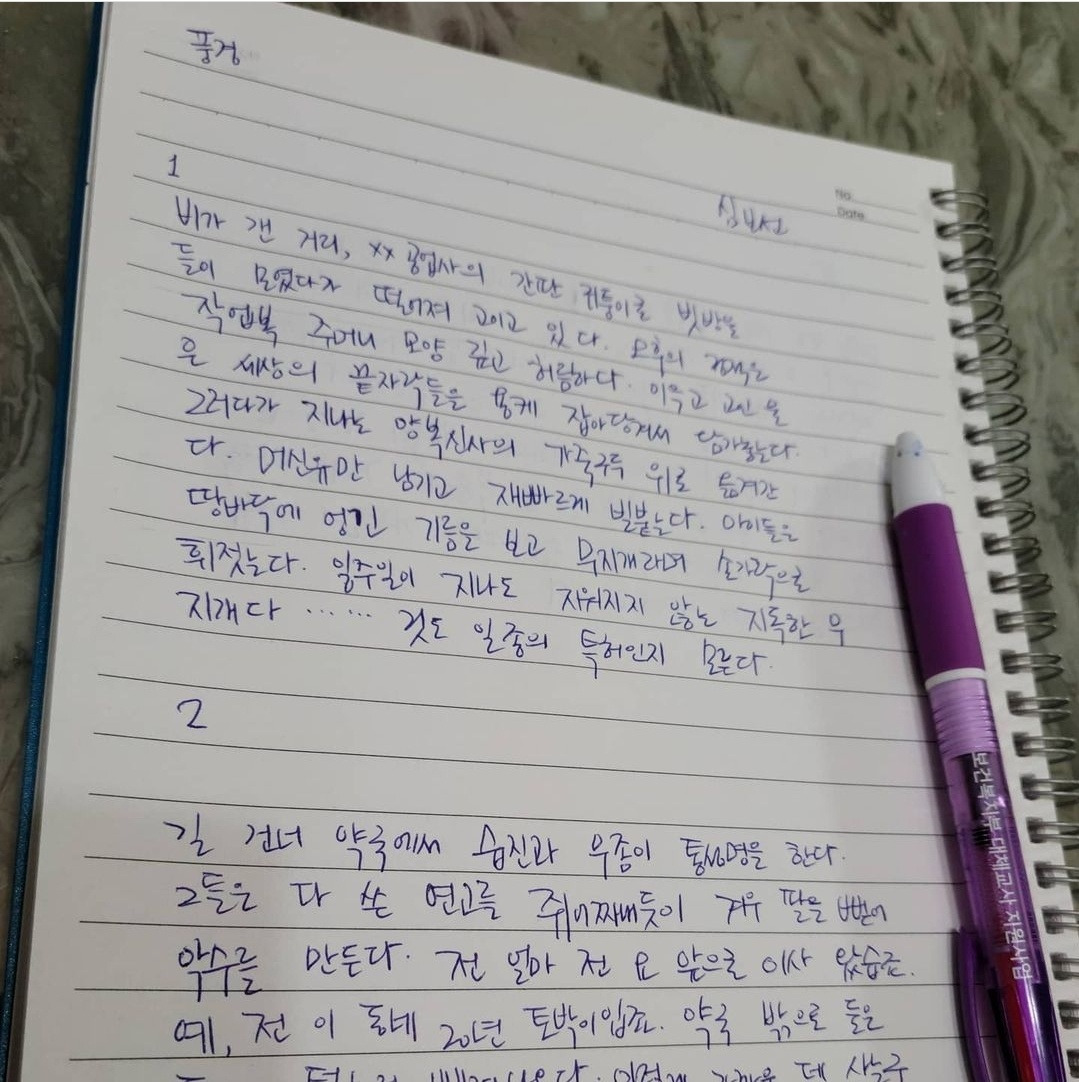 풍경
No.
Date.
심보선
1
비가 갠 거리, ××공업사의 간판 귀퉁이로 빗방울
들이 모였다가 떨어져 고이고 있다. 오후의 정적은
작업복 주머니 모양 깊고 허름하다. 이윽고 고인 물
은 세상의 끝자락들을 용케 잡아당겨서 담가놓는다.
그러다가 지나는 양복신사의 가죽구두 위로 옮겨간
다. 머신유만 남기고 재빠르게 빌붙는다. 아이들은
땅바닥에 엉긴 기름을 보고 무지개라며 손가락으로
휘젓는다. 일주일이 지나도 지워지지 않는 지독한 무
지개다 …… 것도 일종의 특허인지 모른다.
2
길 건너 약국에서 습진과 무좀이 통성명을 한다.
그들은 다 쓴 연고를 쥐어짜내듯이 겨우 팔을 뻗어
악수를 만든다. 전 얼마 전 요 앞으로 이사 왔습죠.
예, 전 이 동네 20년 토박이입죠. 약국 밖으로 둘은
데 사는구
보건복지부 대체교사 지원사업